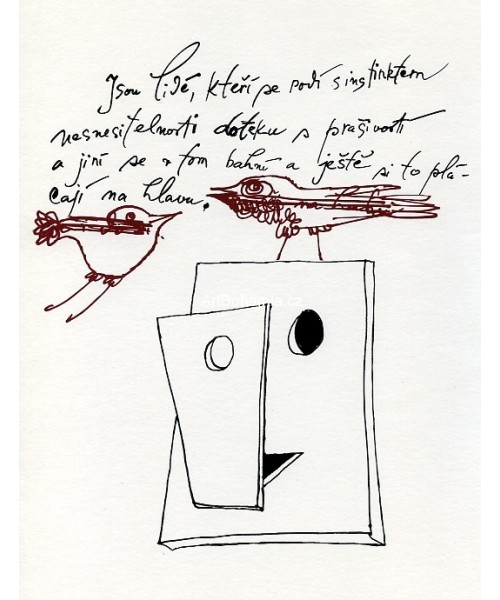 Jsou lidé, kteří se rodí s instinktem
nesnesitelnosti doteku s prašivostí
a jiní se v tom bahní a ještě si to plá-
cají na hlavu.
ArtBohemia.cz